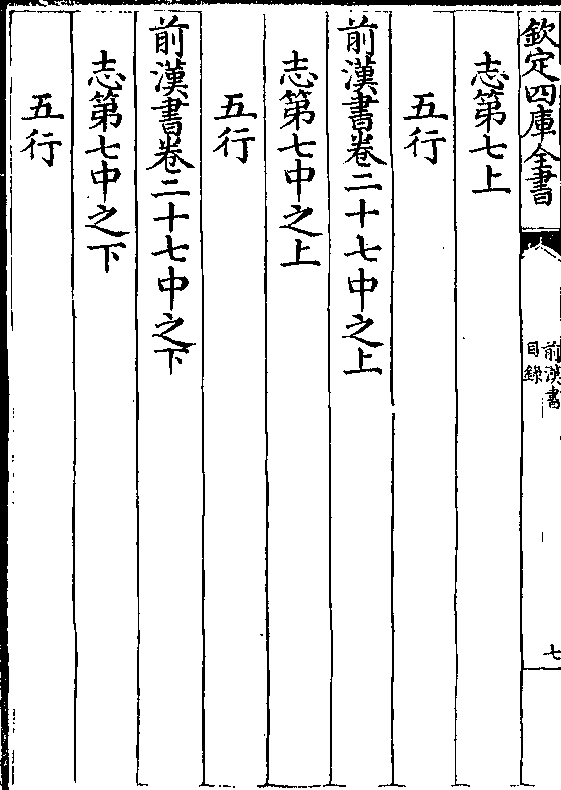 欽定四庫全書
前漢書
目錄
七
志第七上
五行
前漢書卷二十七中之上
志第七中之上
五行
前漢書卷二十七中之下
志第七中之下
五行